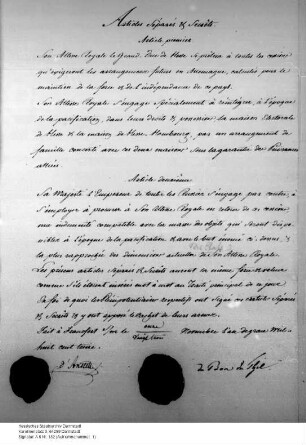 Articles Séparés & Secrets.
Article premier
Son Altesse Royale le Grand Duc de Hesse se prêtera à toutes les cessions
qu'exigeront les arrangemens futurs en Allemagne, calculés pour le
maintien de la force et de l'indépendance de ce pays.
Son Altesse Royale s'engage spécialement à réintégrer, à l'époque
de la pacification, dans leurs droits & la maison Electorale
de Hesse & la maison de Hesse Hombourg, par un arrangement de
famille concerté avec ces deux maisons sous la garantie des Puissances
alliées.
Article deuxième
Sa Majesté l'Empereur de toutes les Russies s'engage par contre, à
s'employer à procurer à Son Altesse Royale en retour de ces cessions
une indemnité compatible avec la masse des objets qui seront dis-
ponibles à l'époque de la pacification & dans le but énoncé ci dessus,
la plus rapprochée des dimensions actuelles de Son Altesse Royale.
Les présens articles Séparés & Secrets auront la même force & valeur
comme s'ils étaient insérés au Traité principal de ce jour.
En foi de quoi les Plénipotentiaires respectifs ont signé ces articles Séparés
& Secrets & y ont apposé le cachet de leurs armes.
Fait à Francfort S/M le onze/vingt trois Novembre l'an de grace Mil
huit cent treize.
d'Anstett
le Baron du Thil
Hessisches Staatsarchiv Darmstadt